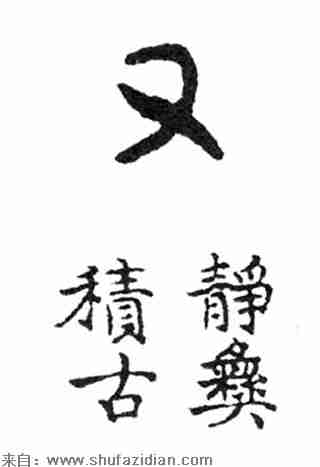 又
靜彝
積古
来自：www.shufazidian.com